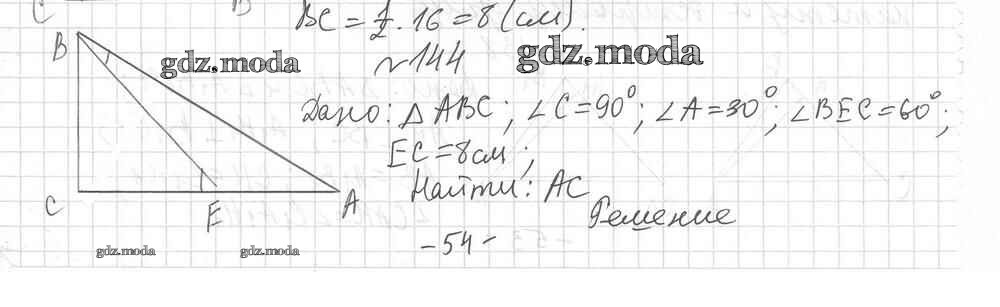 C B BC = 1/2 · 16 = 8 (см).
B gdz.moda №144 gdz.moda
Дано: △ ABC; ∠C=90°; ∠A=30°; ∠BEC=60°;
EC=8см;
Найти: AC
C E A Решение
gdz.moda gdz.moda -54-